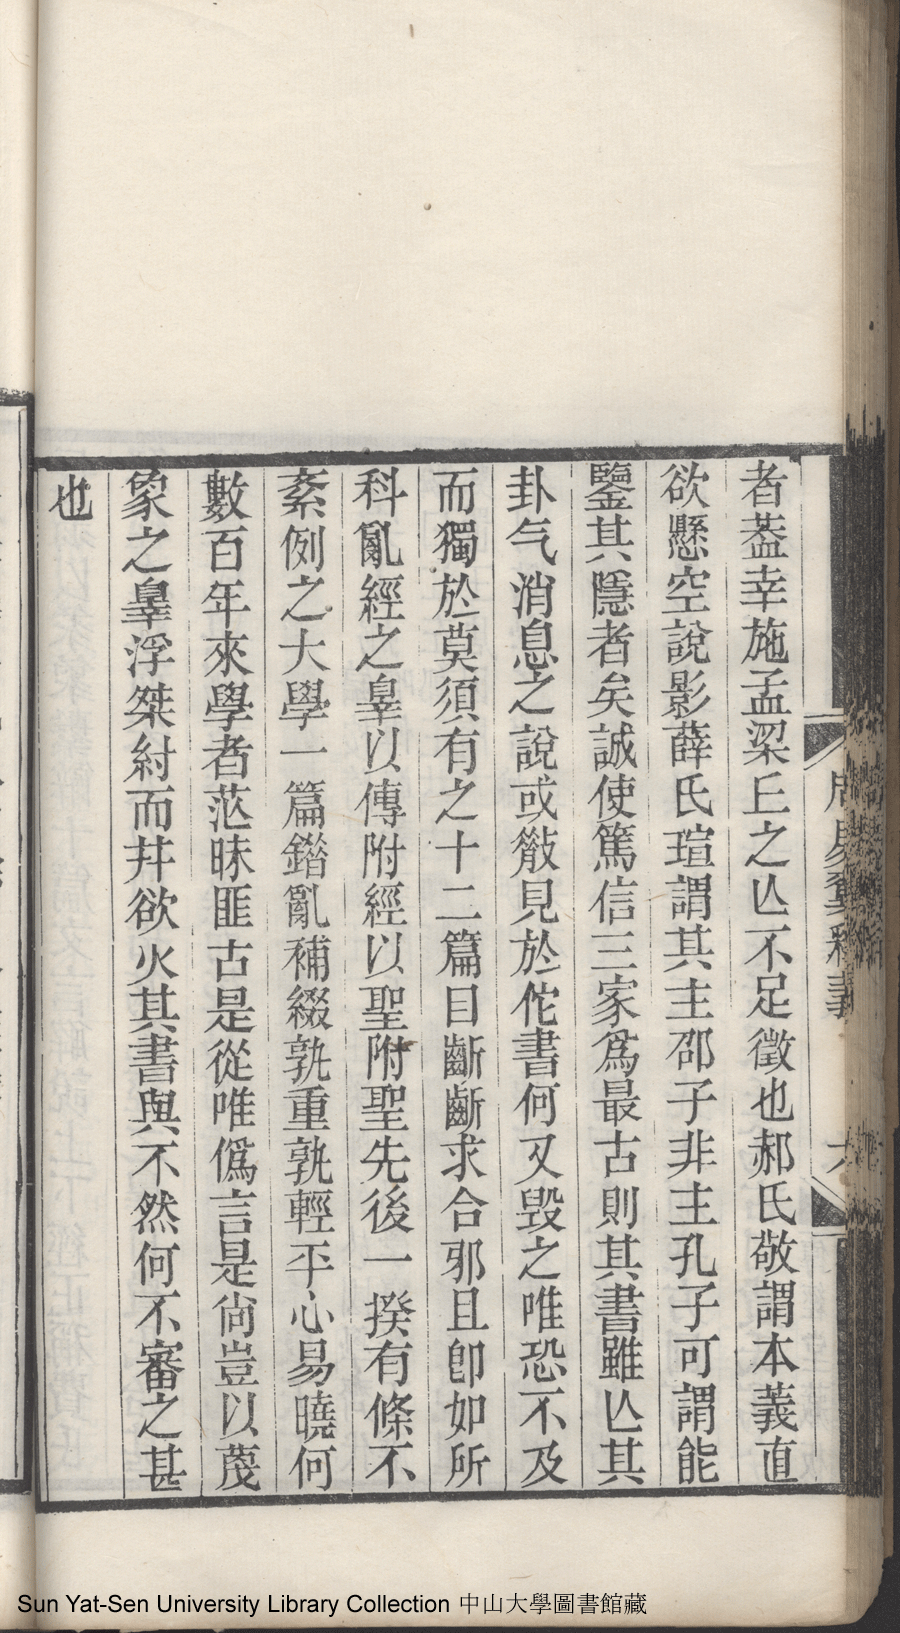 者葢幸施孟梁丘之亾不足徵也郝氏敬謂本義直
欲懸空說影薛氏瑄謂其主邵子非主孔子可謂能
鑒其隱者矣誠使篤信三家爲最古則其書雖亾其
卦气消息之說或㪚見於佗書何又毀之唯恐不及
而獨於莫須有之十二篇目齗齗求合邪且卽如所
科亂經之辠以傳附經以聖附聖先後一揆有條不
紊例之大學一篇錯亂補綴孰重孰輕平心易曉何
數百年來學者茫昧匪古是從唯僞言是尙豈以蔑
象之辠浮桀紂而幷欲火其書與不然何不審之甚
也
周易釋義
六
Sun Yat-Sen University Library Collection 中山大學圖書館藏